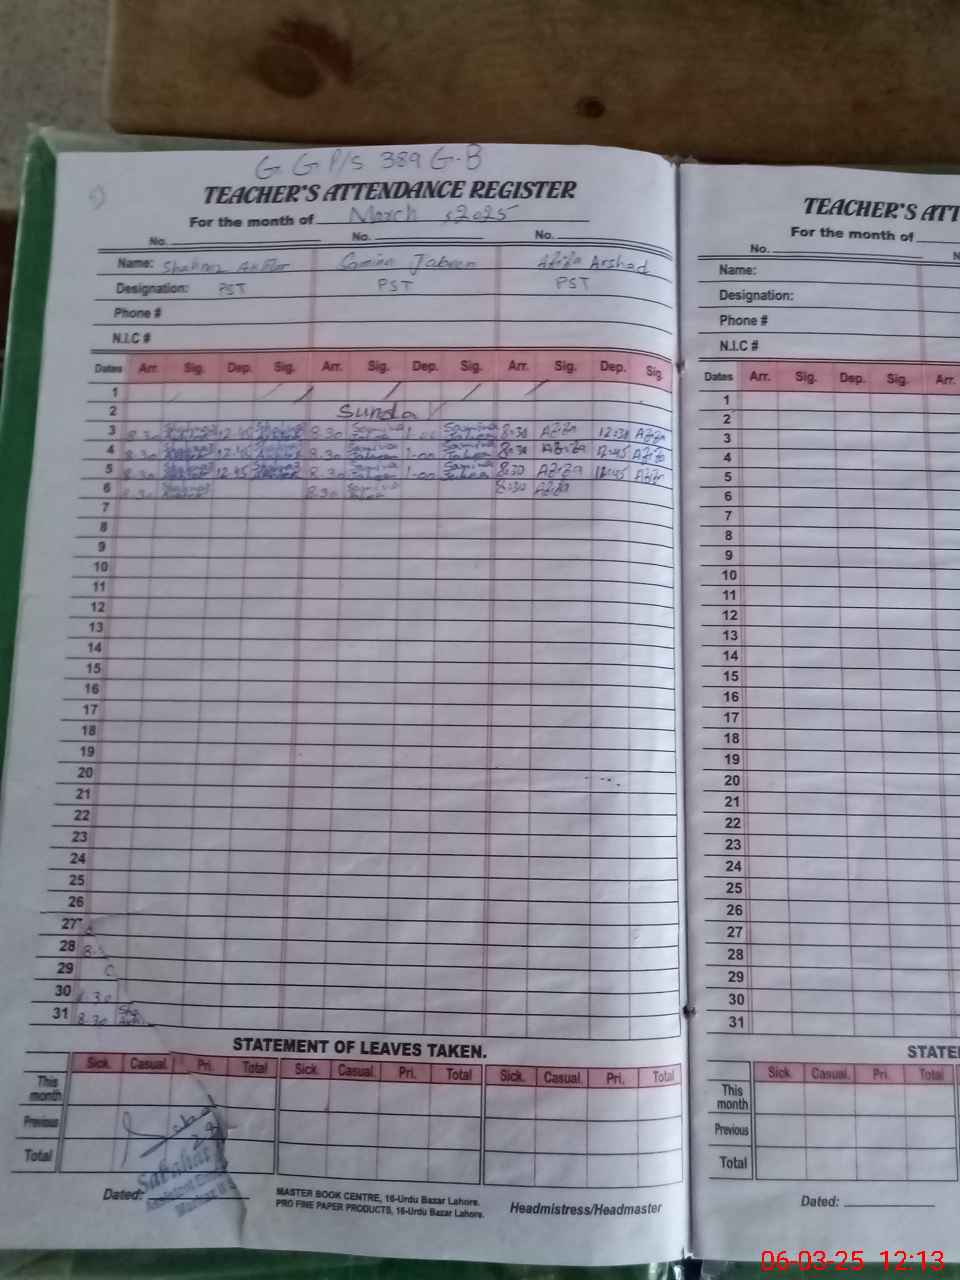 G G P/S 389 G-B
TEACHER'S ATTENDANCE REGISTER
For the month of March 2025
No. No. No.
Name: Shahnaz Akhtar Samina Jabeen Aziza Arshad
Designation: PST PST PST
Phone #
N.I.C #
Dates Arr. Sig. Dep. Sig. Arr. Sig. Dep. Sig. Arr. Sig. Dep. Sig.
1
2 Sunday
3 8.30 12.45 8.30 Samina 1.00 Samina 8:30 12:30
4 8.30 12.45 8.30 Samina 1-00 Samina 8:30 Aziza 12:45
5 8.30 12.45 8.30 Samina 1-00 Samina 8:30 Aziza 12:45
6 8.30 8.30 Samina 8:30
7
8
9
10
11
12
13
14
15
16
17
18
19
20
21
22
23
24
25
26
27
28
29
30
31 8.30
STATEMENT OF LEAVES TAKEN.
Sick. Casual. Pri. Total Sick. Casual. Pri. Total Sick. Casual. Pri. Total
This month
Previous
Total
Dated:
MASTER BOOK CENTRE, 16-Urdu Bazar Lahore.
PRO FINE PAPER PRODUCTS, 16-Urdu Bazar Lahore.
Headmistress/Headmaster
TEACHER'S ATT
For the month of
No.
Name:
Designation:
Phone #
N.I.C #
Dates Arr. Sig. Dep. Sig. Arr.
1
2
3
4
5
6
7
8
9
10
11
12
13
14
15
16
17
18
19
20
21
22
23
24
25
26
27
28
29
30
31
STATE
Sick. Casual. Pri. Total
This month
Previous
Total
Dated:
06-03-25 12:13